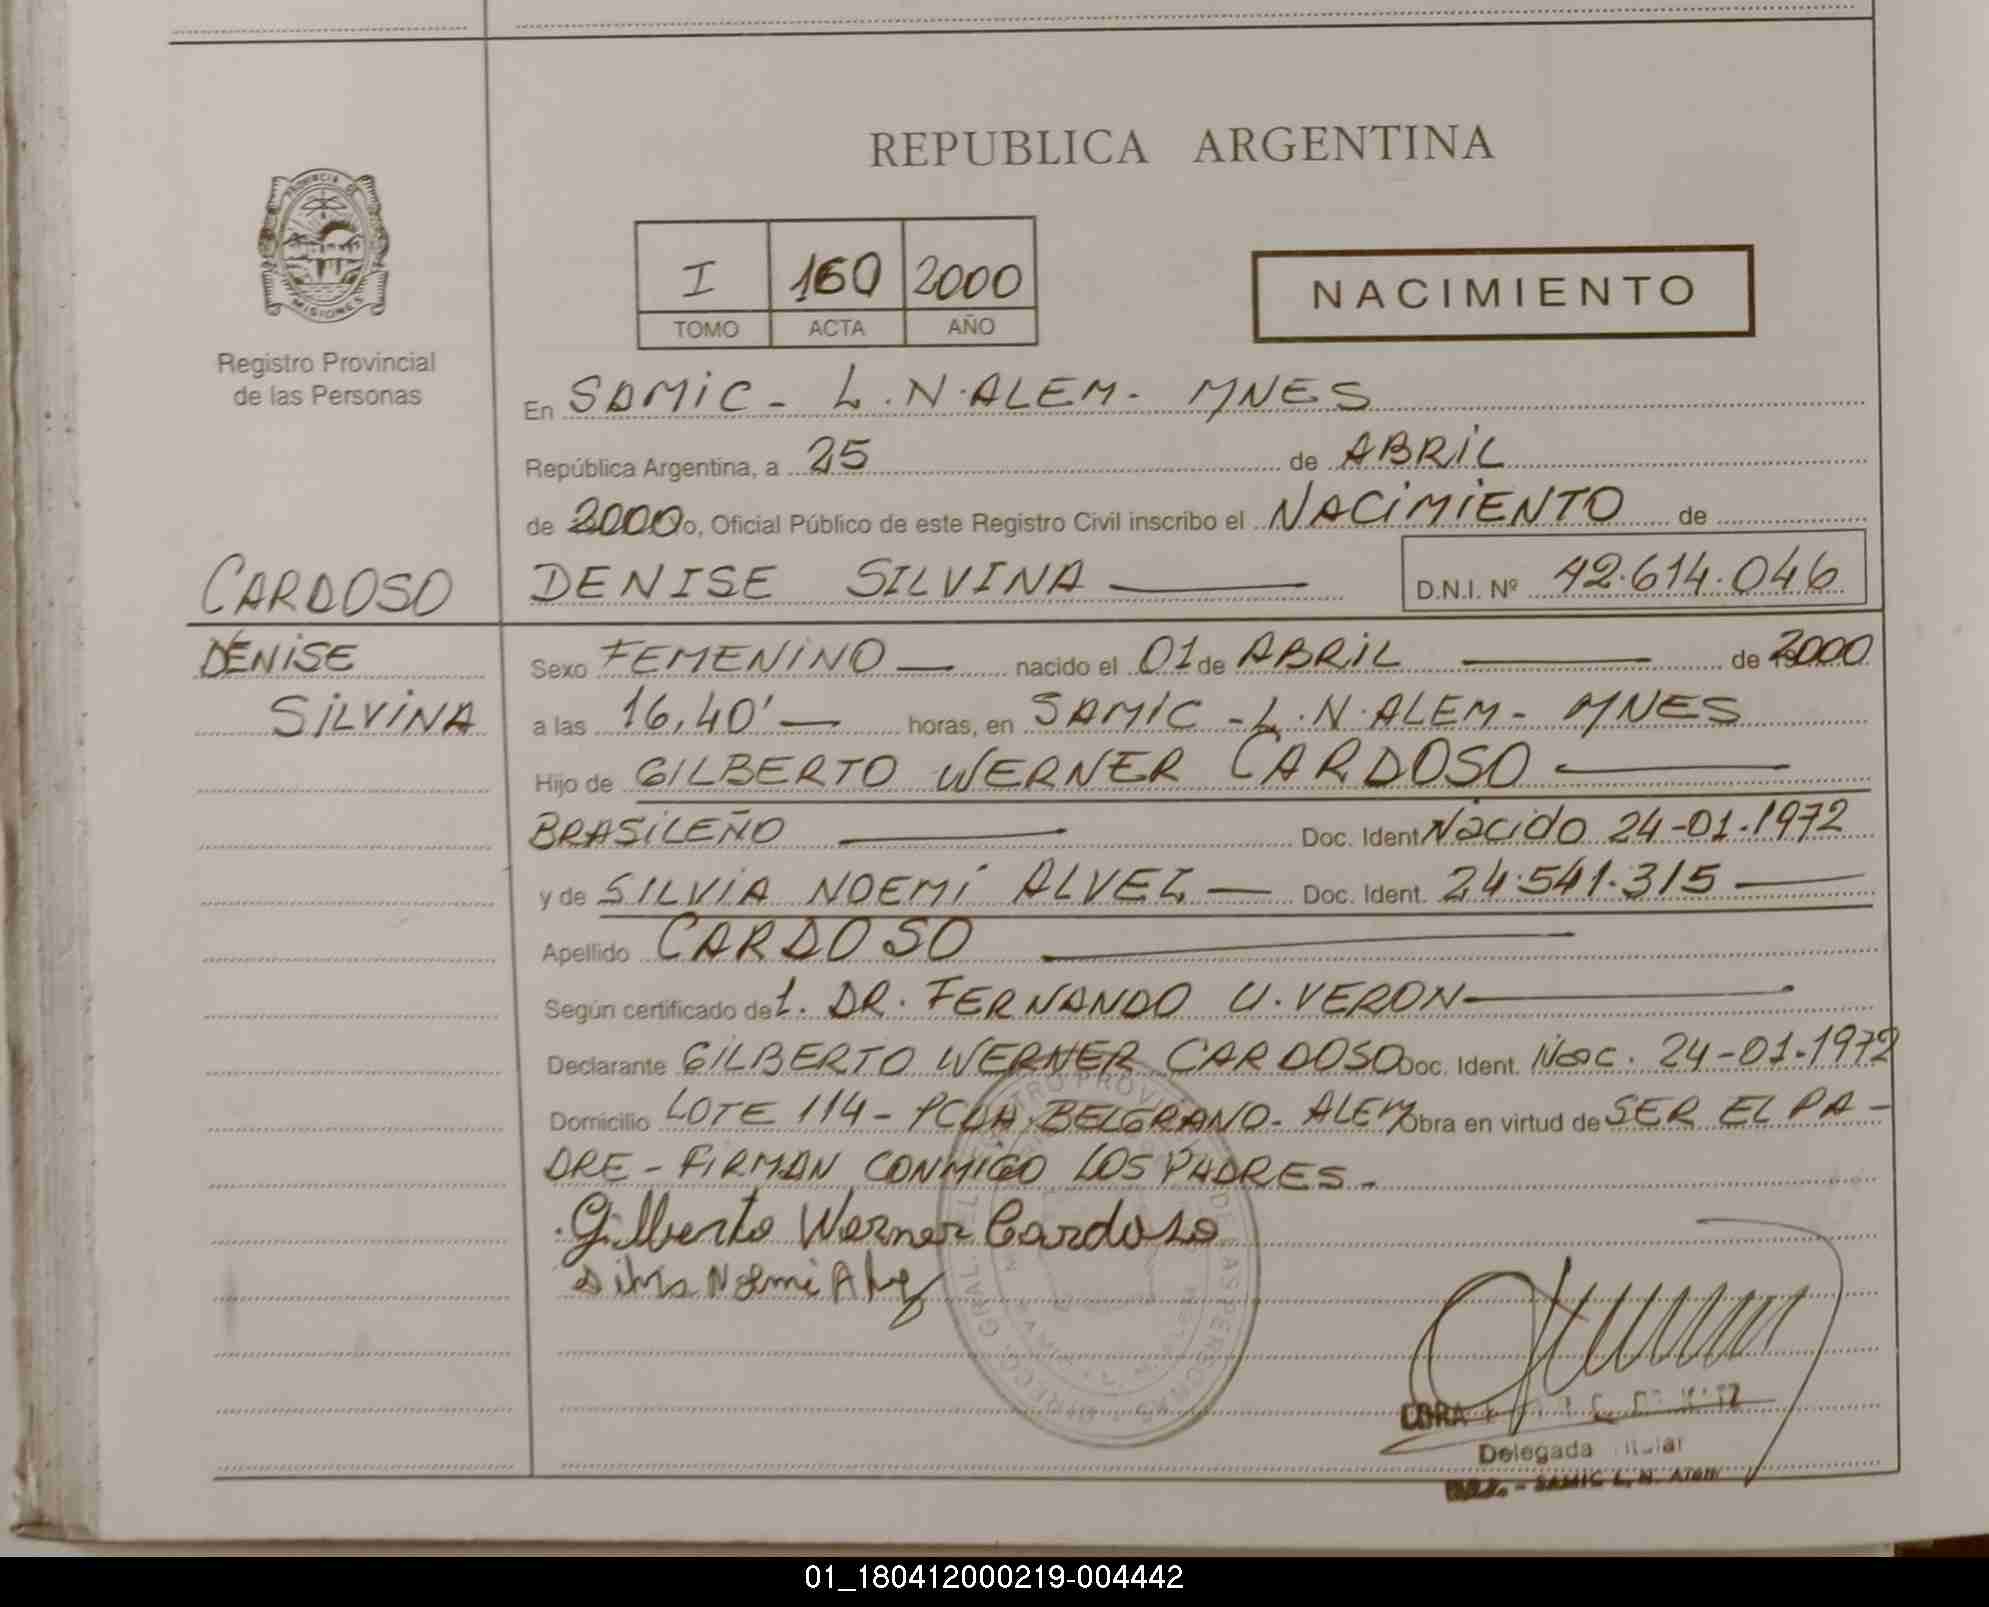 REPUBLICA ARGENTINA
PROVINCIA DE
MISIONES
Registro Provincial
de las Personas
I 160 2000
TOMO ACTA AÑO
NACIMIENTO
En SAMIC - L.N.ALEM - MNES
República Argentina, a 25 de ABRIL
de 2000 o, Oficial Público de este Registro Civil inscribo el NACIMIENTO de
CARDOSO
DENISE SILVINA
D.N.I. Nº 42.614.046
DENISE
SILVINA
Sexo FEMENINO nacido el 01 de ABRIL de 2000
a las 16,40' horas, en SAMIC - L.N.ALEM - MNES
Hijo de GILBERTO WERNER CARDOSO
BRASILEÑO Doc. Ident Nacido 24-01-1972
y de SILVIA NOEMI ALVEZ Doc. Ident. 24.541.315
Apellido CARDOSO
Según certificado de l. DR. FERNANDO U. VERON
Declarante GILBERTO WERNER CARDOSO Doc. Ident. Nac. 24-01-1972
Domicilio LOTE 114 - PCDA. BELGRANO - ALEM Obra en virtud de SER EL PA-
DRE - FIRMAN CONMIGO LOS PADRES -
Gilberto Werner Cardoso
Silvia Noemi Alvez
Delegada Titular
SAMIC L. N. Alem
01_180412000219-004442